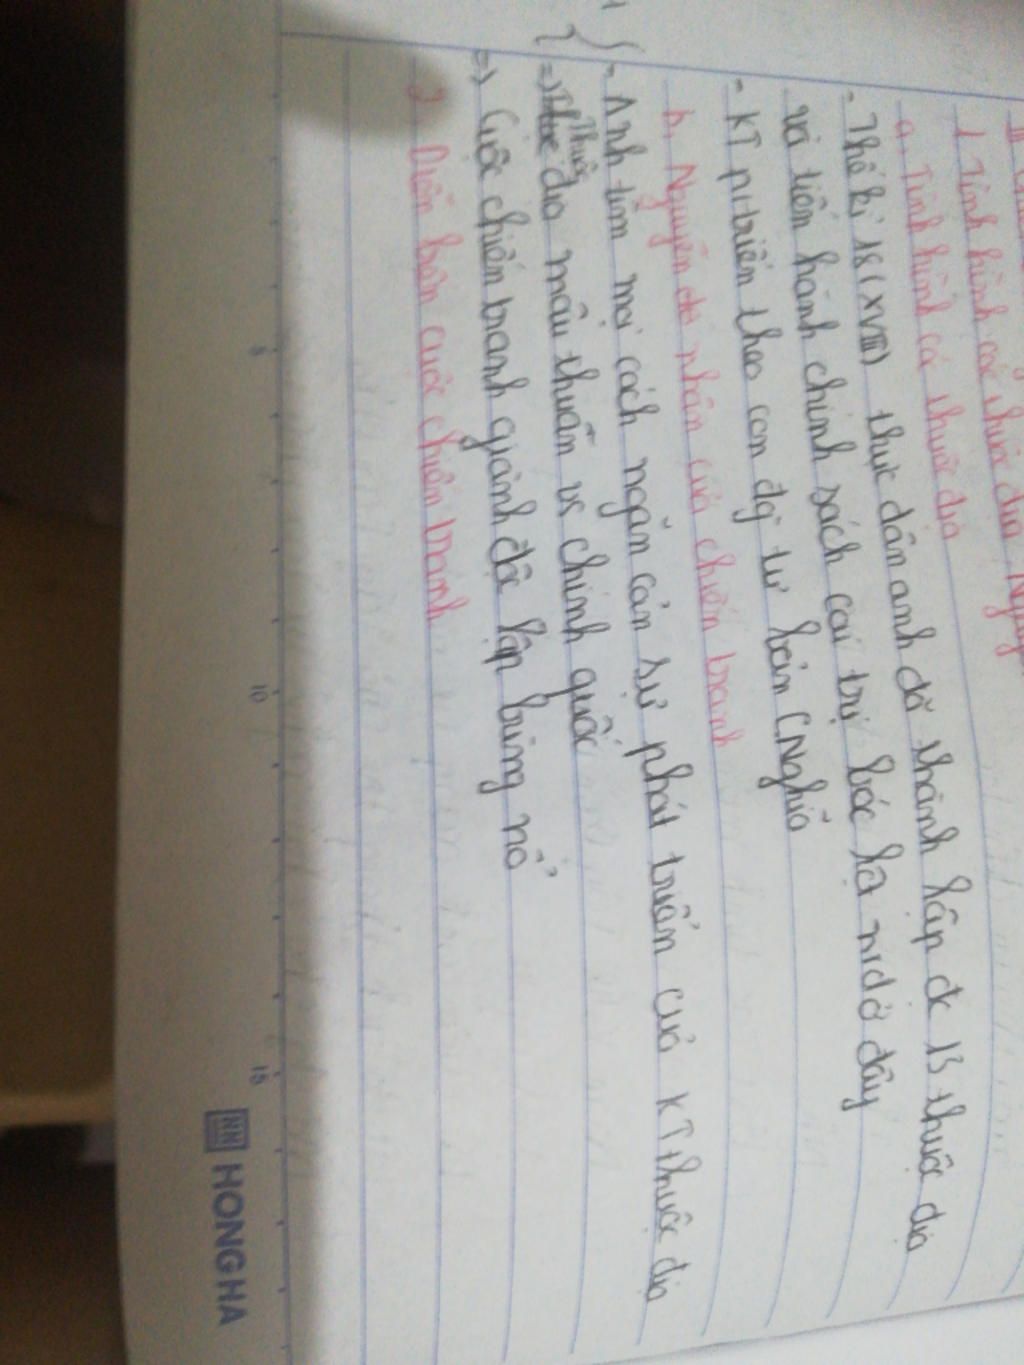 III
1. Tình hình các thuộc địa. Nguyê
a. Tình hình cá thuộc địa
- Thế kỉ 18 (XVIII) thực dân anh đã thành lập đc 13 thuộc địa
và tiến hành chính sách cai trị bóc lột nd ở đây
- KT ptriển theo con đg tư bản CNghĩa
b. Nguyên nhân của chiến tranh
- Anh tìm mọi cách ngăn cản sự phát triển của KT thuộc địa
Thuộc
=> địa mâu thuẫn vs chính quốc
=> Cuộc chiến tranh giành độc lập bùng nổ
2. Diễn biến cuộc chiến tranh
5 10 15
HONG HA